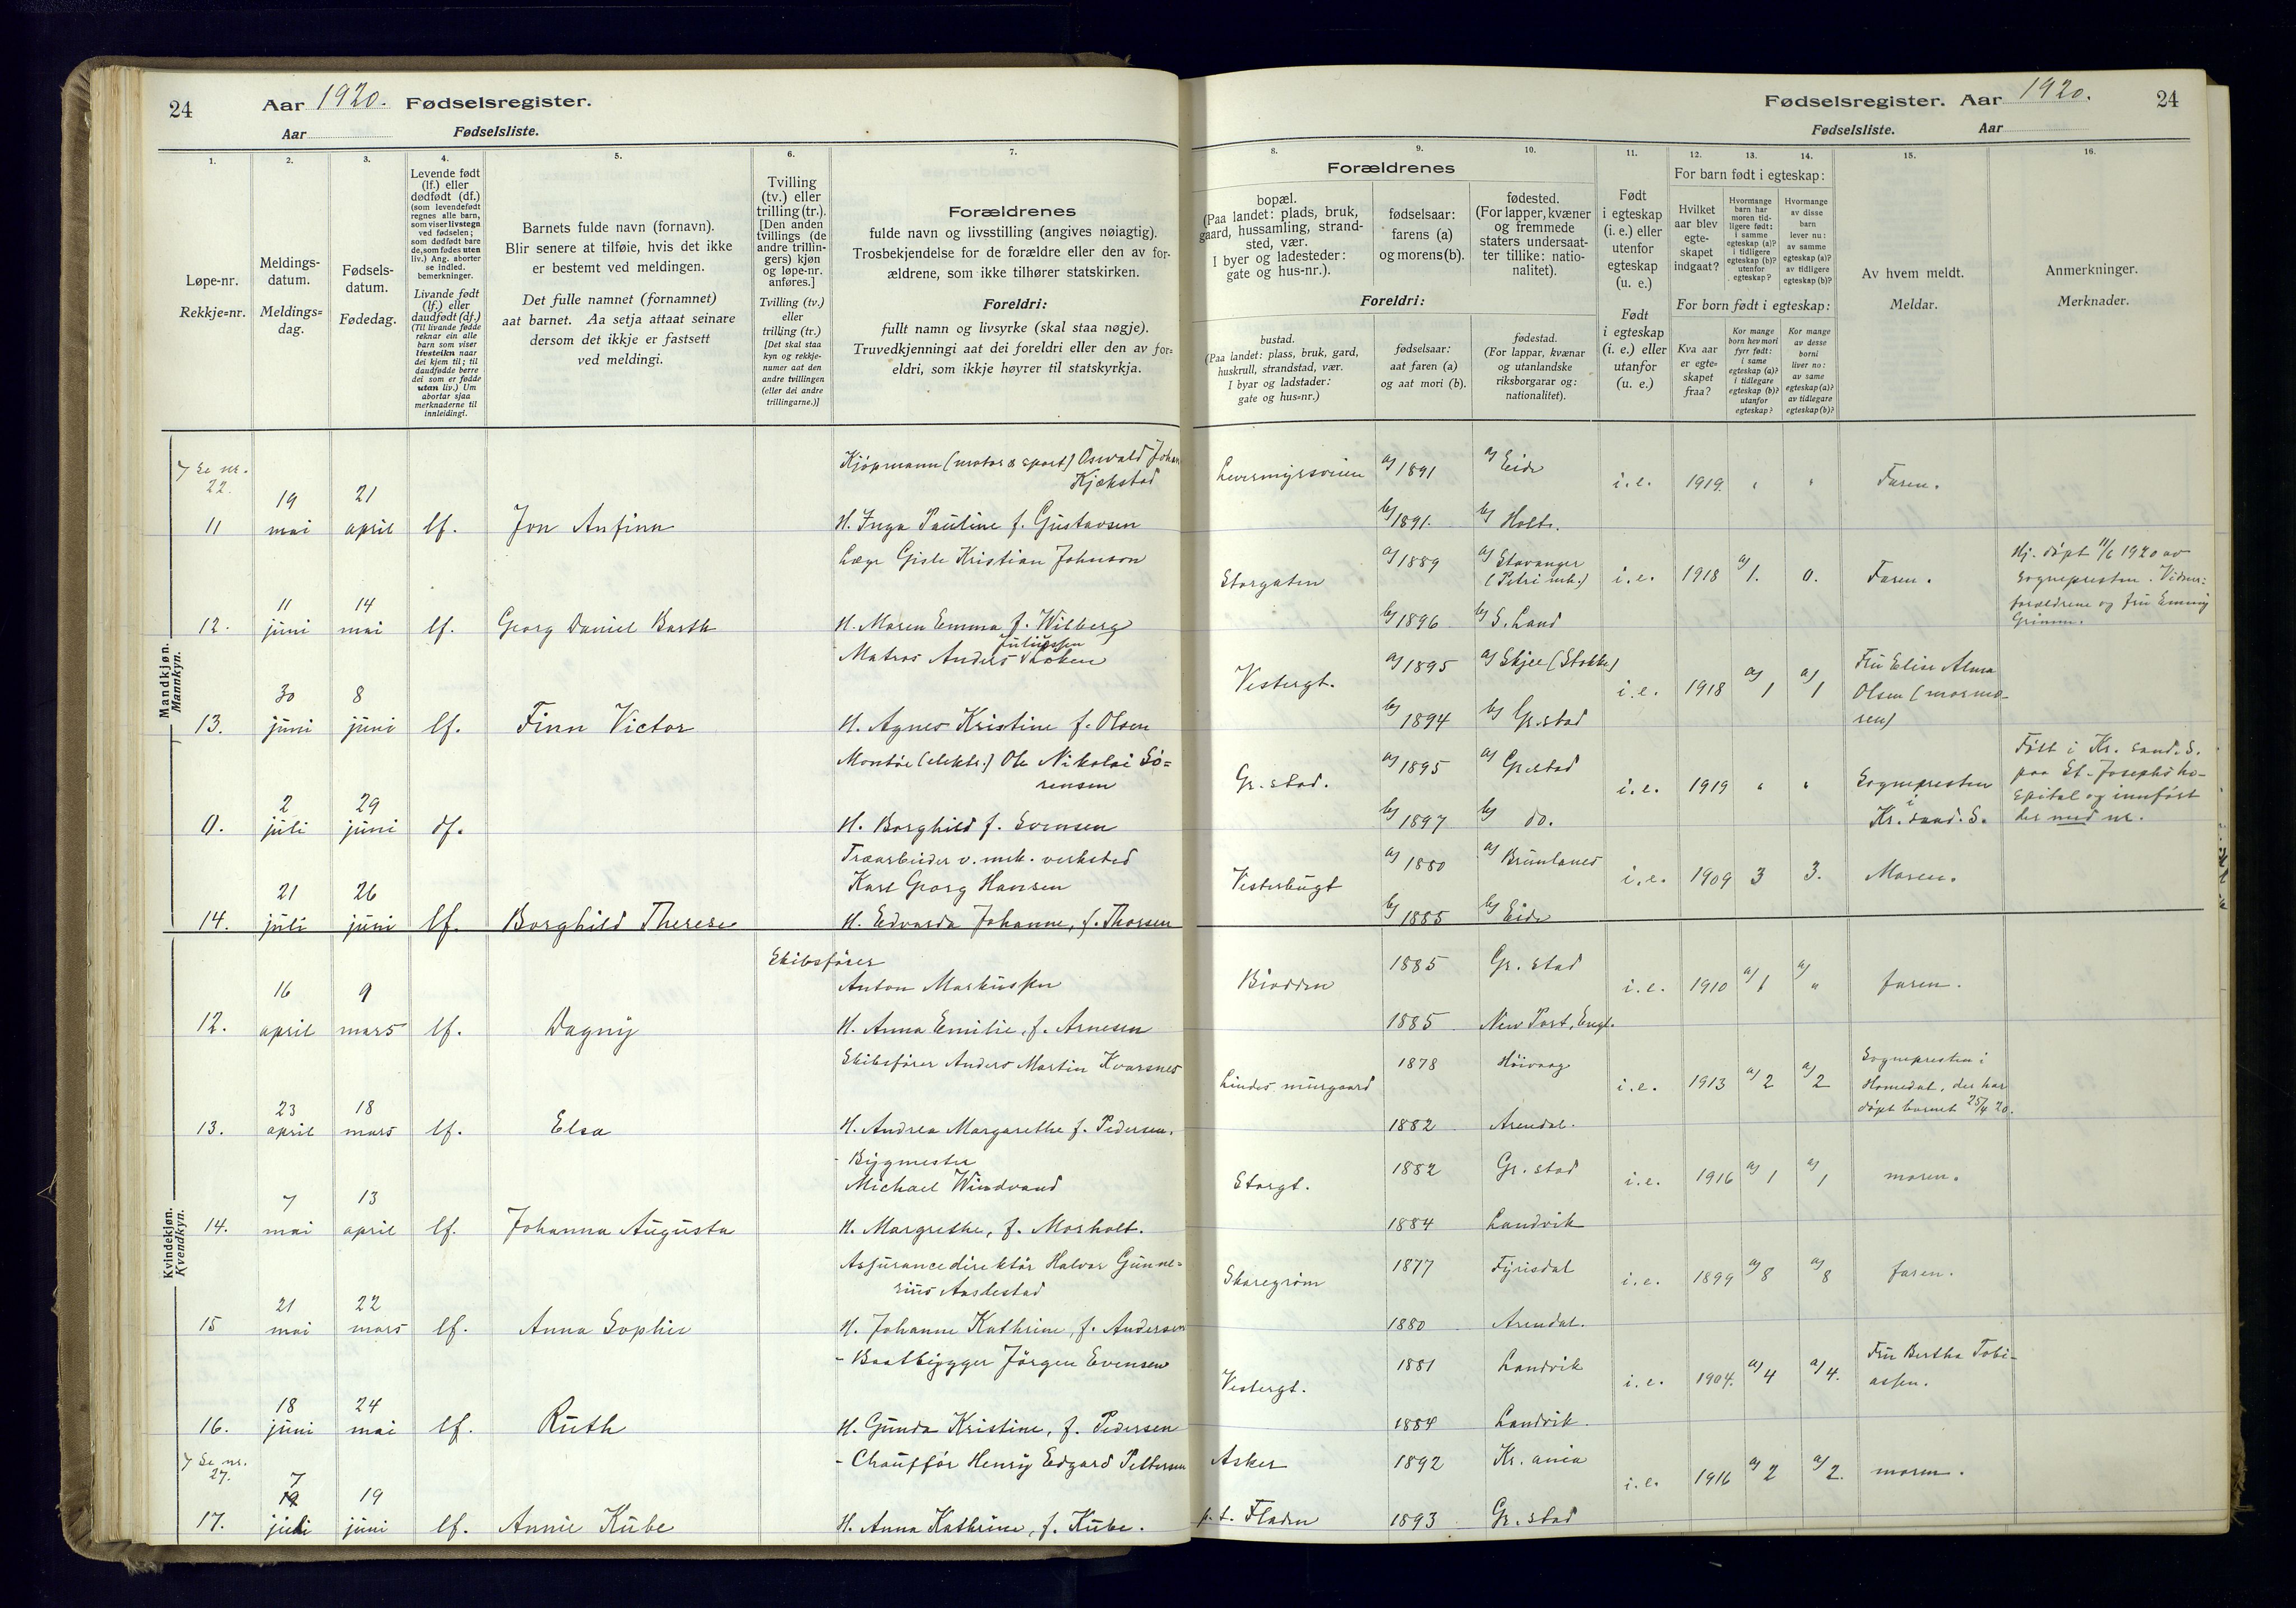 24 Aar 1920. Fødselsregister.
Aar Fødselsliste.
Fødselsregister. Aar 1920. 24
Fødselsliste. Aar
1. 2. 3. 4. 5. 6. 7.
Løpe-nr.
Rekkje=nr.
Meldings-
datum.
Meldings=
dag.
Fødsels-
datum.
Fødedag.
Levende født
(lf.) eller
dødfødt (df.)
(som levendefødt
regnes alle barn,
som viser livstegn
ved fødselen;
som dødfødt bare
de, som fødes uten
liv.) Ang. aborter
se indled.
bemerkninger.
Livande født
(lf.) eller
daudfødt (df.)
(Til livande fødde
reknar ein alle
barn som viser
livsteikn naar
dei kjem til; til
daudfødde berre
dei som er fødde
utan liv.) Um
abortar sjaa
merknaderne til
innleidingi.
Barnets fulde navn (fornavn).
Blir senere at tilføie, hvis det ikke
er bestemt ved meldingen.
Det fulle namnet (fornamnet)
aat barnet. Aa setja attaat seinare
dersom det ikkje er fastsett
ved meldingi.
Tvilling
(tv.) eller
trilling (tr.).
[Den anden
tvillings (de
andre trillin-
gers) kjøn
og løpe-nr.
anføres.]
Tvilling (tv.)
eller
trilling (tr.)
[Det skal staa
kyn og rekkje-
numer aat den
andre tvillingen
(eller dei andre
trillingarne.)]
Forældrenes
fulde navn og livsstilling (angives nøiagtig).
Trosbekjendelse for de forældre eller den av for-
ældrene, som ikke tilhører statskirken.
Foreldri:
fullt namn og livsyrke (skal staa nøgje).
Truvedkjenningi aat dei foreldri eller den av for=
eldri, som ikkje høyrer til statskyrkja.
8. 9. 10. 11. 12. 13. 14. 15. 16.
Forældrenes
bopæl.
(Paa landet: plads, bruk,
gaard, hussamling, strand-
sted, vær.
I byer og ladesteder:
gate og hus-nr.).
fødselsaar:
farens (a)
og morens (b).
fødested.
(For lapper, kvæner
og fremmede
staters undersaat-
ter tillike: natio-
nalitet).
Foreldri:
bustad.
(Paa landet: plass, bruk, gard,
huskrull, strandstad, vær.
I byar og ladstader:
gate og hus=nr.)
fødselsaar:
aat faren (a)
og aat mori (b).
fødestad.
(For lappar, kvænar
og utanlandske
riksborgarar og:
nationalitet).
Født
i egteskap
(i. e.) eller
utenfor
egteskap
(u. e.)
Født
i egteskap
(i. e.) eller
utanfor
(u. e.)
For barn født i egteskap:
Hvilket
aar blev
egte-
skapet
indgaat?
Hvormange
barn har
moren tid-
ligere født:
i samme
egteskap (a)?
i tidligere
egteskap (b)?
utenfor
egteskap?
Hvormange
av disse
barn
lever nu:
av samme
egteskap (a)?
av tidligere
egteskap (b)?
For born født i egteskap:
Kva aar
er egte=
skapet
fraa?
Kor mange
born hev mori
fyrr født:
i same
egteskap (a)?
i tidlegare
egteskap (b)?
utanfor
egteskap?
Kor mange
av desse
borni
liver no:
av same
egteskap (a)?
av tidlegare
egteskap (b)?
Av hvem meldt.
Meldar.
Anmerkninger.
Merknader.
Mandkjøn.
Mannkyn.
Se nr.
22.
11 19 mai 21 april lf. Jon Anfinn
Kjøpmann (motor & sport) Oswald Johan
Kjekstad
H. Inga Pauline f. Gustavsen
Levermyrsveien a) 1891 a) Eide i. e. 1919. " " Faren.
b) 1891. b) Holt.
12. 11 juni 14 mai lf. Georg Daniel Barth
Læge Gisle Kristian Johnson
H. Maren Emma f. Wilberg
Storgaten a) 1889 a) Stavanger
(Petri mh.) i. e. 1918 a) 1. 0. Faren.
b) 1896 b) S. Land
Hj. døpt 11/6 1920 av
sognepresten. Vidner:
forældrene og fru Emmy
Grimm.
13. 30 juni 8 juni lf. Finn Victor
Juliussen
Matros Anders Løken
H. Agnes Kristine f. Olsen
Vestergt. a) 1895 a) Skjee (Stokke) i. e. 1918 a) 1 a) 1
b) 1894 b) Gr.stad
Fru Elise Alma
Olsen (mormo-
ren)
0. 2 juli 29 juni df.
Montør (elektr.) Ole Nikolai Sø=
rensen
H. Borghild f. Svensen
Gr. stad. a) 1895 a) Gr.stad i. e. 1919 " "
b) 1897 b) do.
Sognepresten
i
Kr. sand. S.
Født i Kr. sand. S.
paa St. Josephs ho-
spital og innført
der med nr.
14. 21 juli 26 juni lf. Borghild Therese
Træarbeider v. mek. verksted
Karl Georg Hansen
H. Edvarda Johanne, f. Thorsen
Vesterbugt a) 1880 a) Brunlanes i. e. 1909 3 3. Moren.
b) 1885 b) Eide
Kvindekjøn.
Kvendkyn.
12. 16 april 9 mars lf. Dagny
Skibsfører
Anton Markussen
H. Anna Emilie, f. Arnesen
Biodden 1885 Gr. stad i. e. 1910 a) 1 a) " faren.
1885 New Port, Engl.
13. 23 april 18 mars lf. Elsa
Skibsfører Anders Martin Kvarsnes
H. Andrea Margarethe f. Pedersen.
Lindes murgaard 1878 Høivaag i. e. 1913 a) 2 a) 2
1882 Arendal.
Sognepresten i
Homedal, der har
døpt barnet 25/4 20.
14. 7 mai 13 april lf. Johanna Augusta
- Bygmester
Michael Windvand
H. Margrethe, f. Morholt.
Storgt. 1882 Gr. stad i. e. 1916 a) 1 a) 1 moren.
1884 Landvik
15 21 mai 22 mars lf. Anna Sophie
Assurancedirektør Halvor Gunne=
rius Aaslestad
H. Johanne Kathrine, f. Andersen
Skaregrøm 1877 Fyrisdal i. e. 1899 a) 8 a) 8 faren.
1880 Arendal.
16. 18 juni 24 mai lf. Ruth
- Baatbygger Jørgen Evensen
H. Gunda Kristine, f. Pedersen
Vestergt. 1881 Landvik i. e. 1904. a) 4 a) 4.
1884 Landvik.
Fru Bertha Tobi-
assen.
Se nr.
27.
17. 7 juli 19 juni lf. Annie Kube
- Chauffør Henry Edgard Pettersen
H. Anna Kathrine, f. Kube.
Asker 1892 Kr. ania i. e. 1916 a) 2 a) 2. moren.
p. t. Fladen 1893 Gr. stad